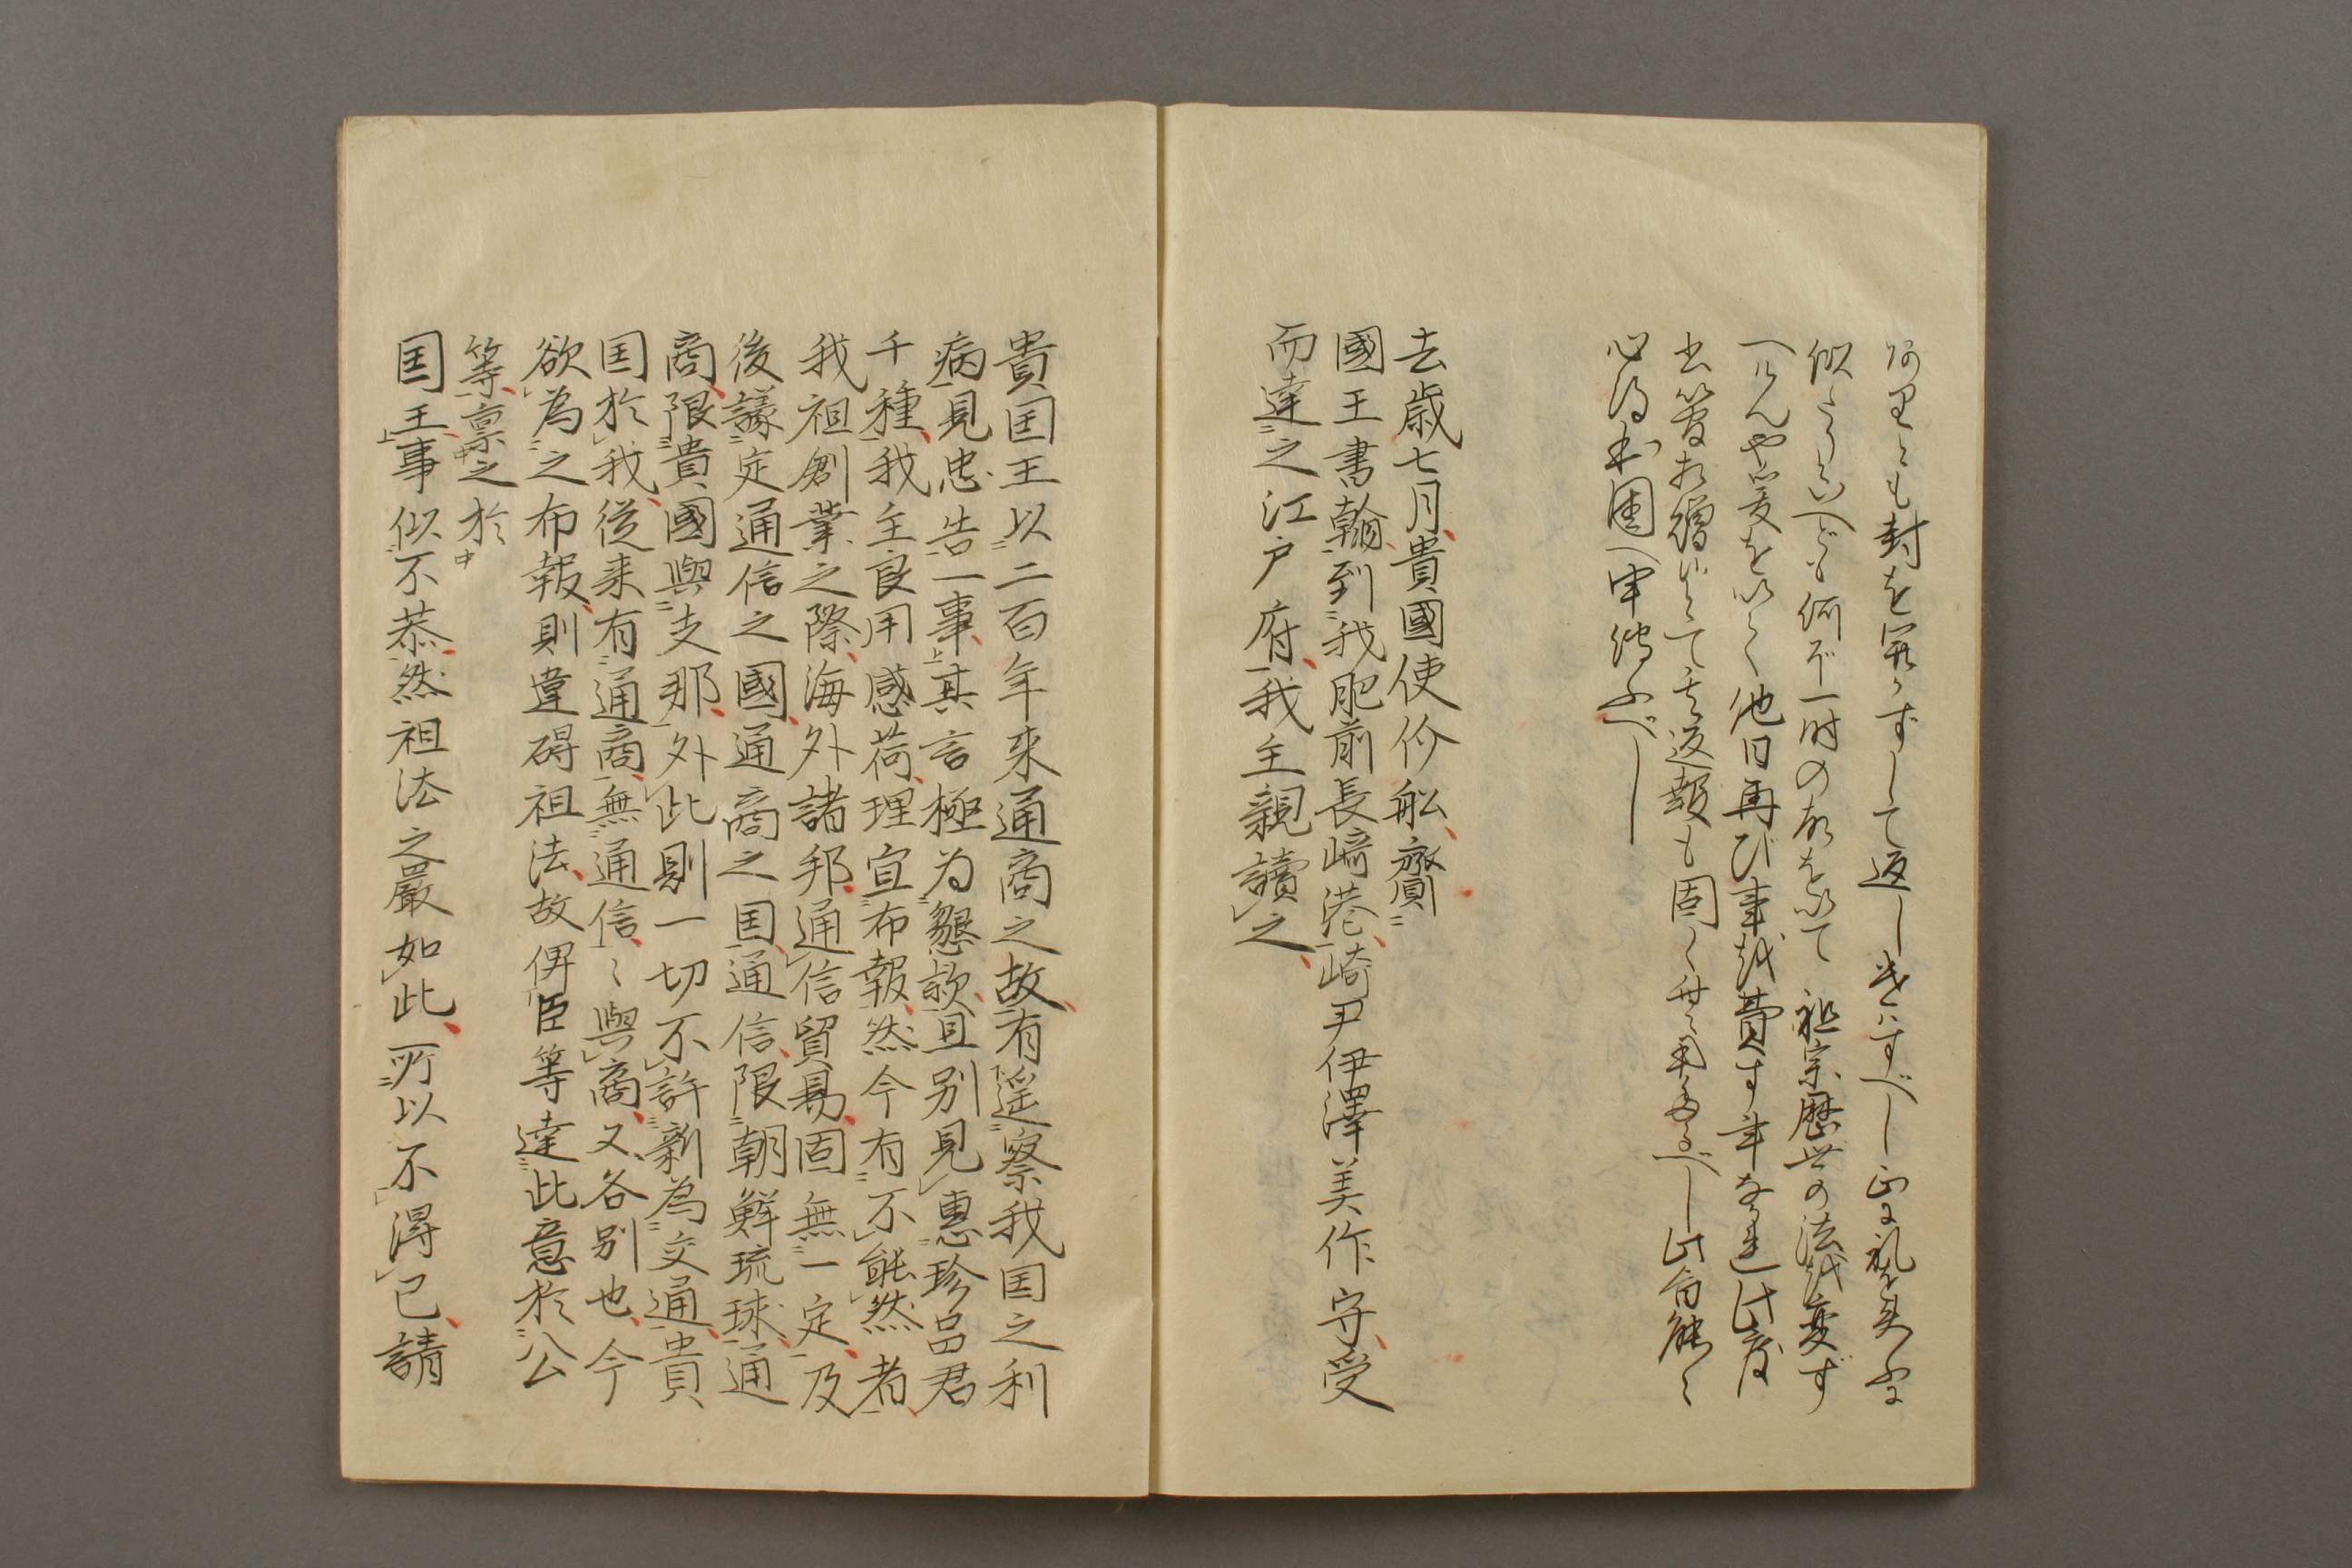 ありとも封を開かずして返し遣はすべし此に礼を失ふに
似たりといへども何ぞ一時の故を以て祖宗歴世の法を変ず
べけんや爰を以て他日再び事を費す事なかれ此度
書簡相贈りて其返報も固く無用たるべし此旨能々
心得本国へ申伝ふべし
去歳七月貴國使价船齎
國王書翰到我肥前長﨑港崎尹伊澤美作守受
而達之江戸府我主親讀之
貴国王以二百年来通商之故有遥察我国之利
病見忠告一事其言極為懇款且別見惠珍品君
千種我主良用感荷理宜布報然今有不能然者
我祖創業之際海外諸邦通信貿易固無一定及
後議定通信之國通商之国通信限朝鮮琉球通
商限貴國與支那外此則一切不許新為交通貴
国於我従来有通商無通信〻與商又各別也今
欲為之布報則違碍祖法故俾臣等達此意於公
等禀之於
国王事似不恭然祖法之嚴如此所以不得已請